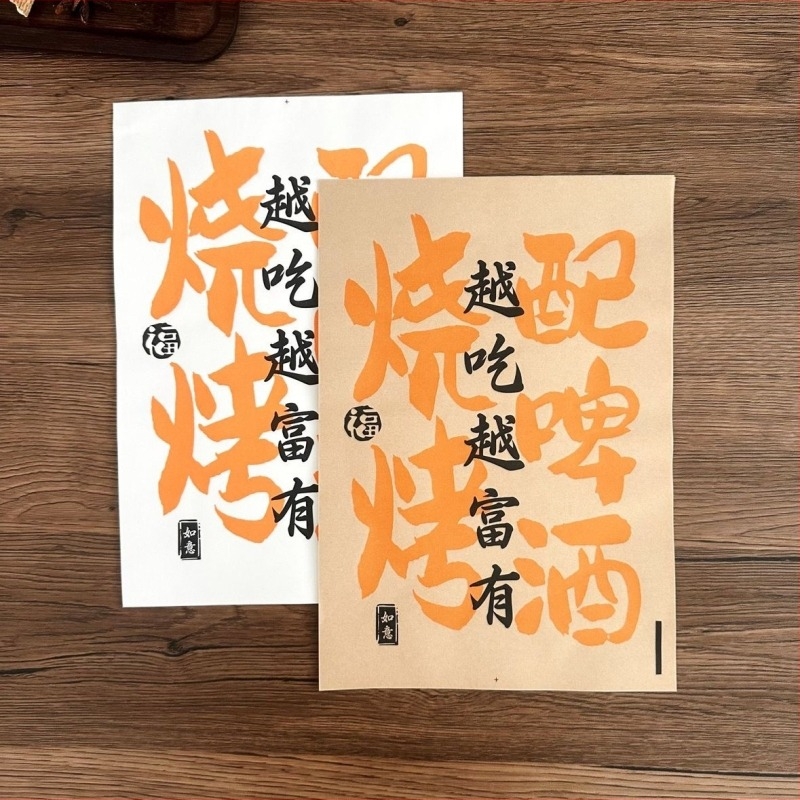 烧烤
越吃越富有
福
如意
烧烤
越吃越富有
配啤酒
福
如意